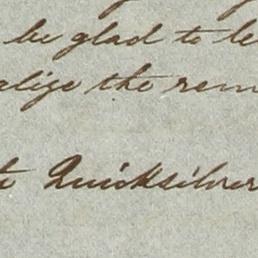 be glad to le
alize the rem
Quicksilver